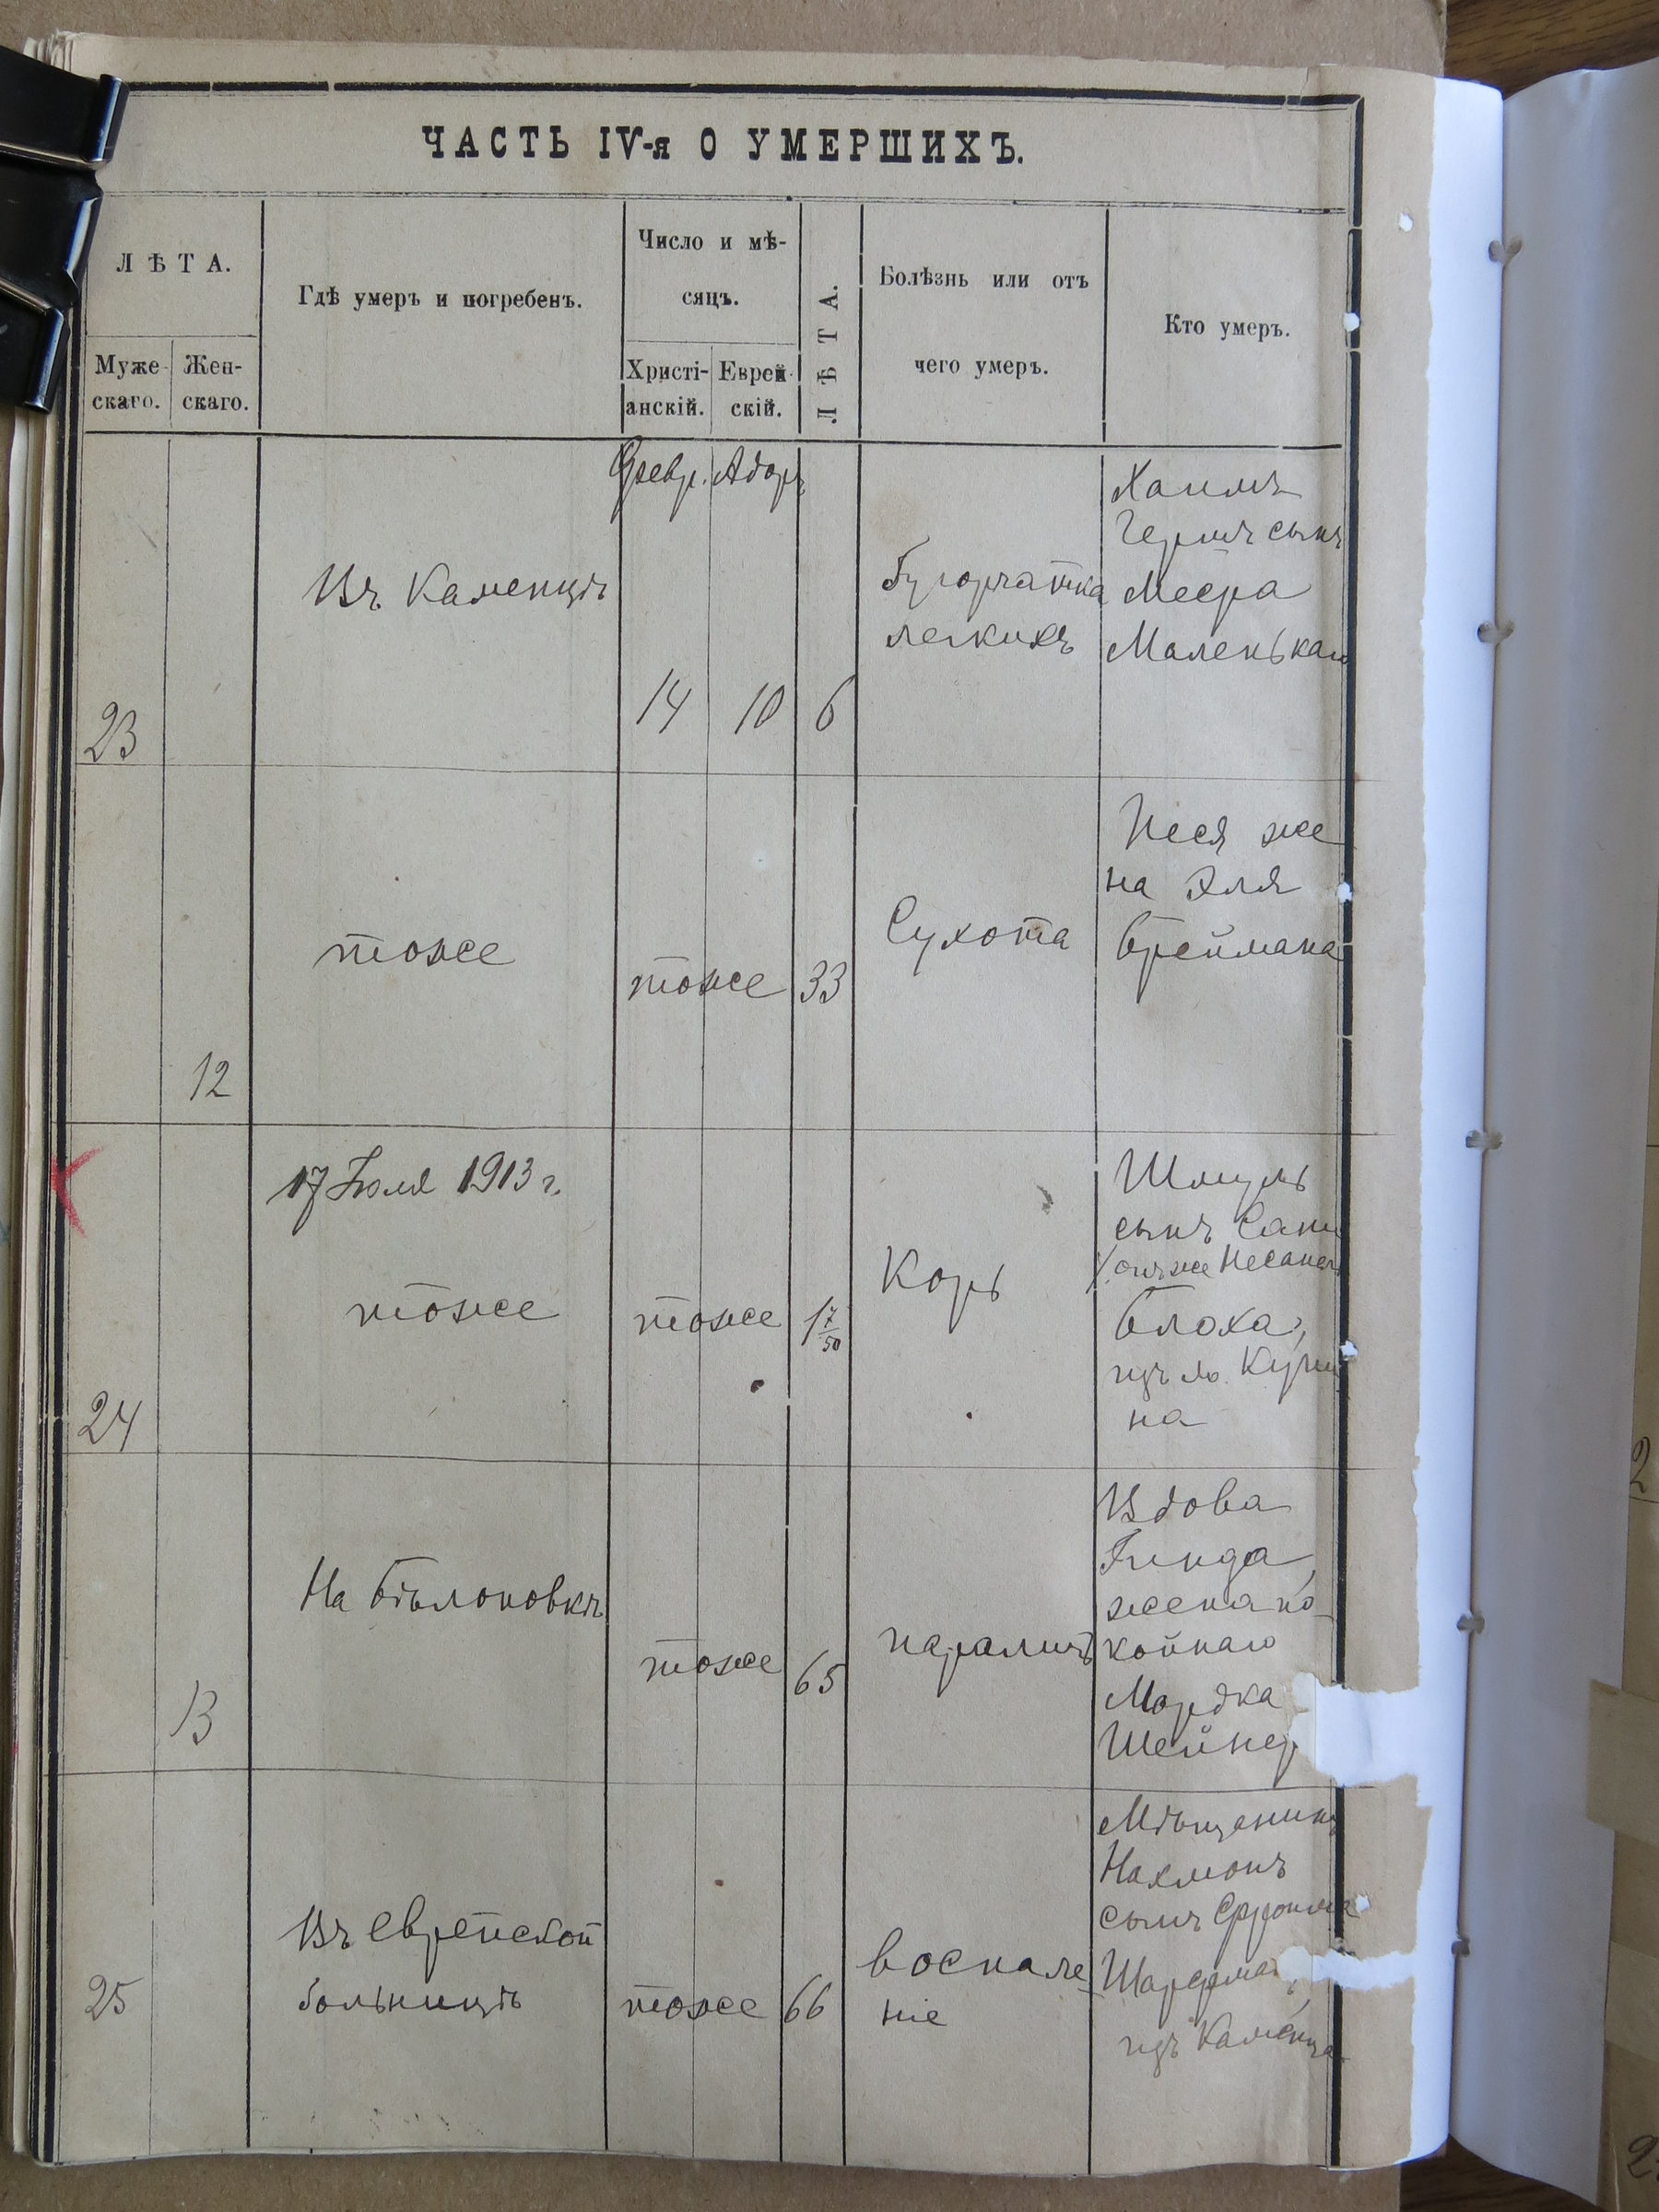 ЧАСТЬ IV-я О УМЕРШИХЪ.
ЛѢТА.
Муже-
скаго.
Жен-
скаго.
Гдѣ умеръ и погребенъ.
Число и мѣ-
сяцъ.
Христі-
анскій.
Еврей-
скій.
ЛѢТА.
Болѣзнь или отъ
чего умеръ.
Кто умеръ.
Февр. Адаръ
23
Въ Каменцѣ
14 10 6
Бугорчатка
легкихъ
Хаимъ
Гершъ сынъ
Меера
Маленькаго
12
тоже
тоже
33
Сухота
Песя же
на Эля
Бреймана
17 Іюля 1913 г.
24
тоже
тоже
17/50
Корь
Шмуль
сынъ
онъ же
Блоха,
изъ м. Купи
на
13
На Бѣлоновкѣ
тоже
65
параличъ
Вдова
жена по
койнаго
Мордка
Шейнер
25
Въ еврейской
больницѣ
тоже
66
воспале
ніе
Мѣщанинъ
Нахманъ
сынъ Фроима
изъ Каменца